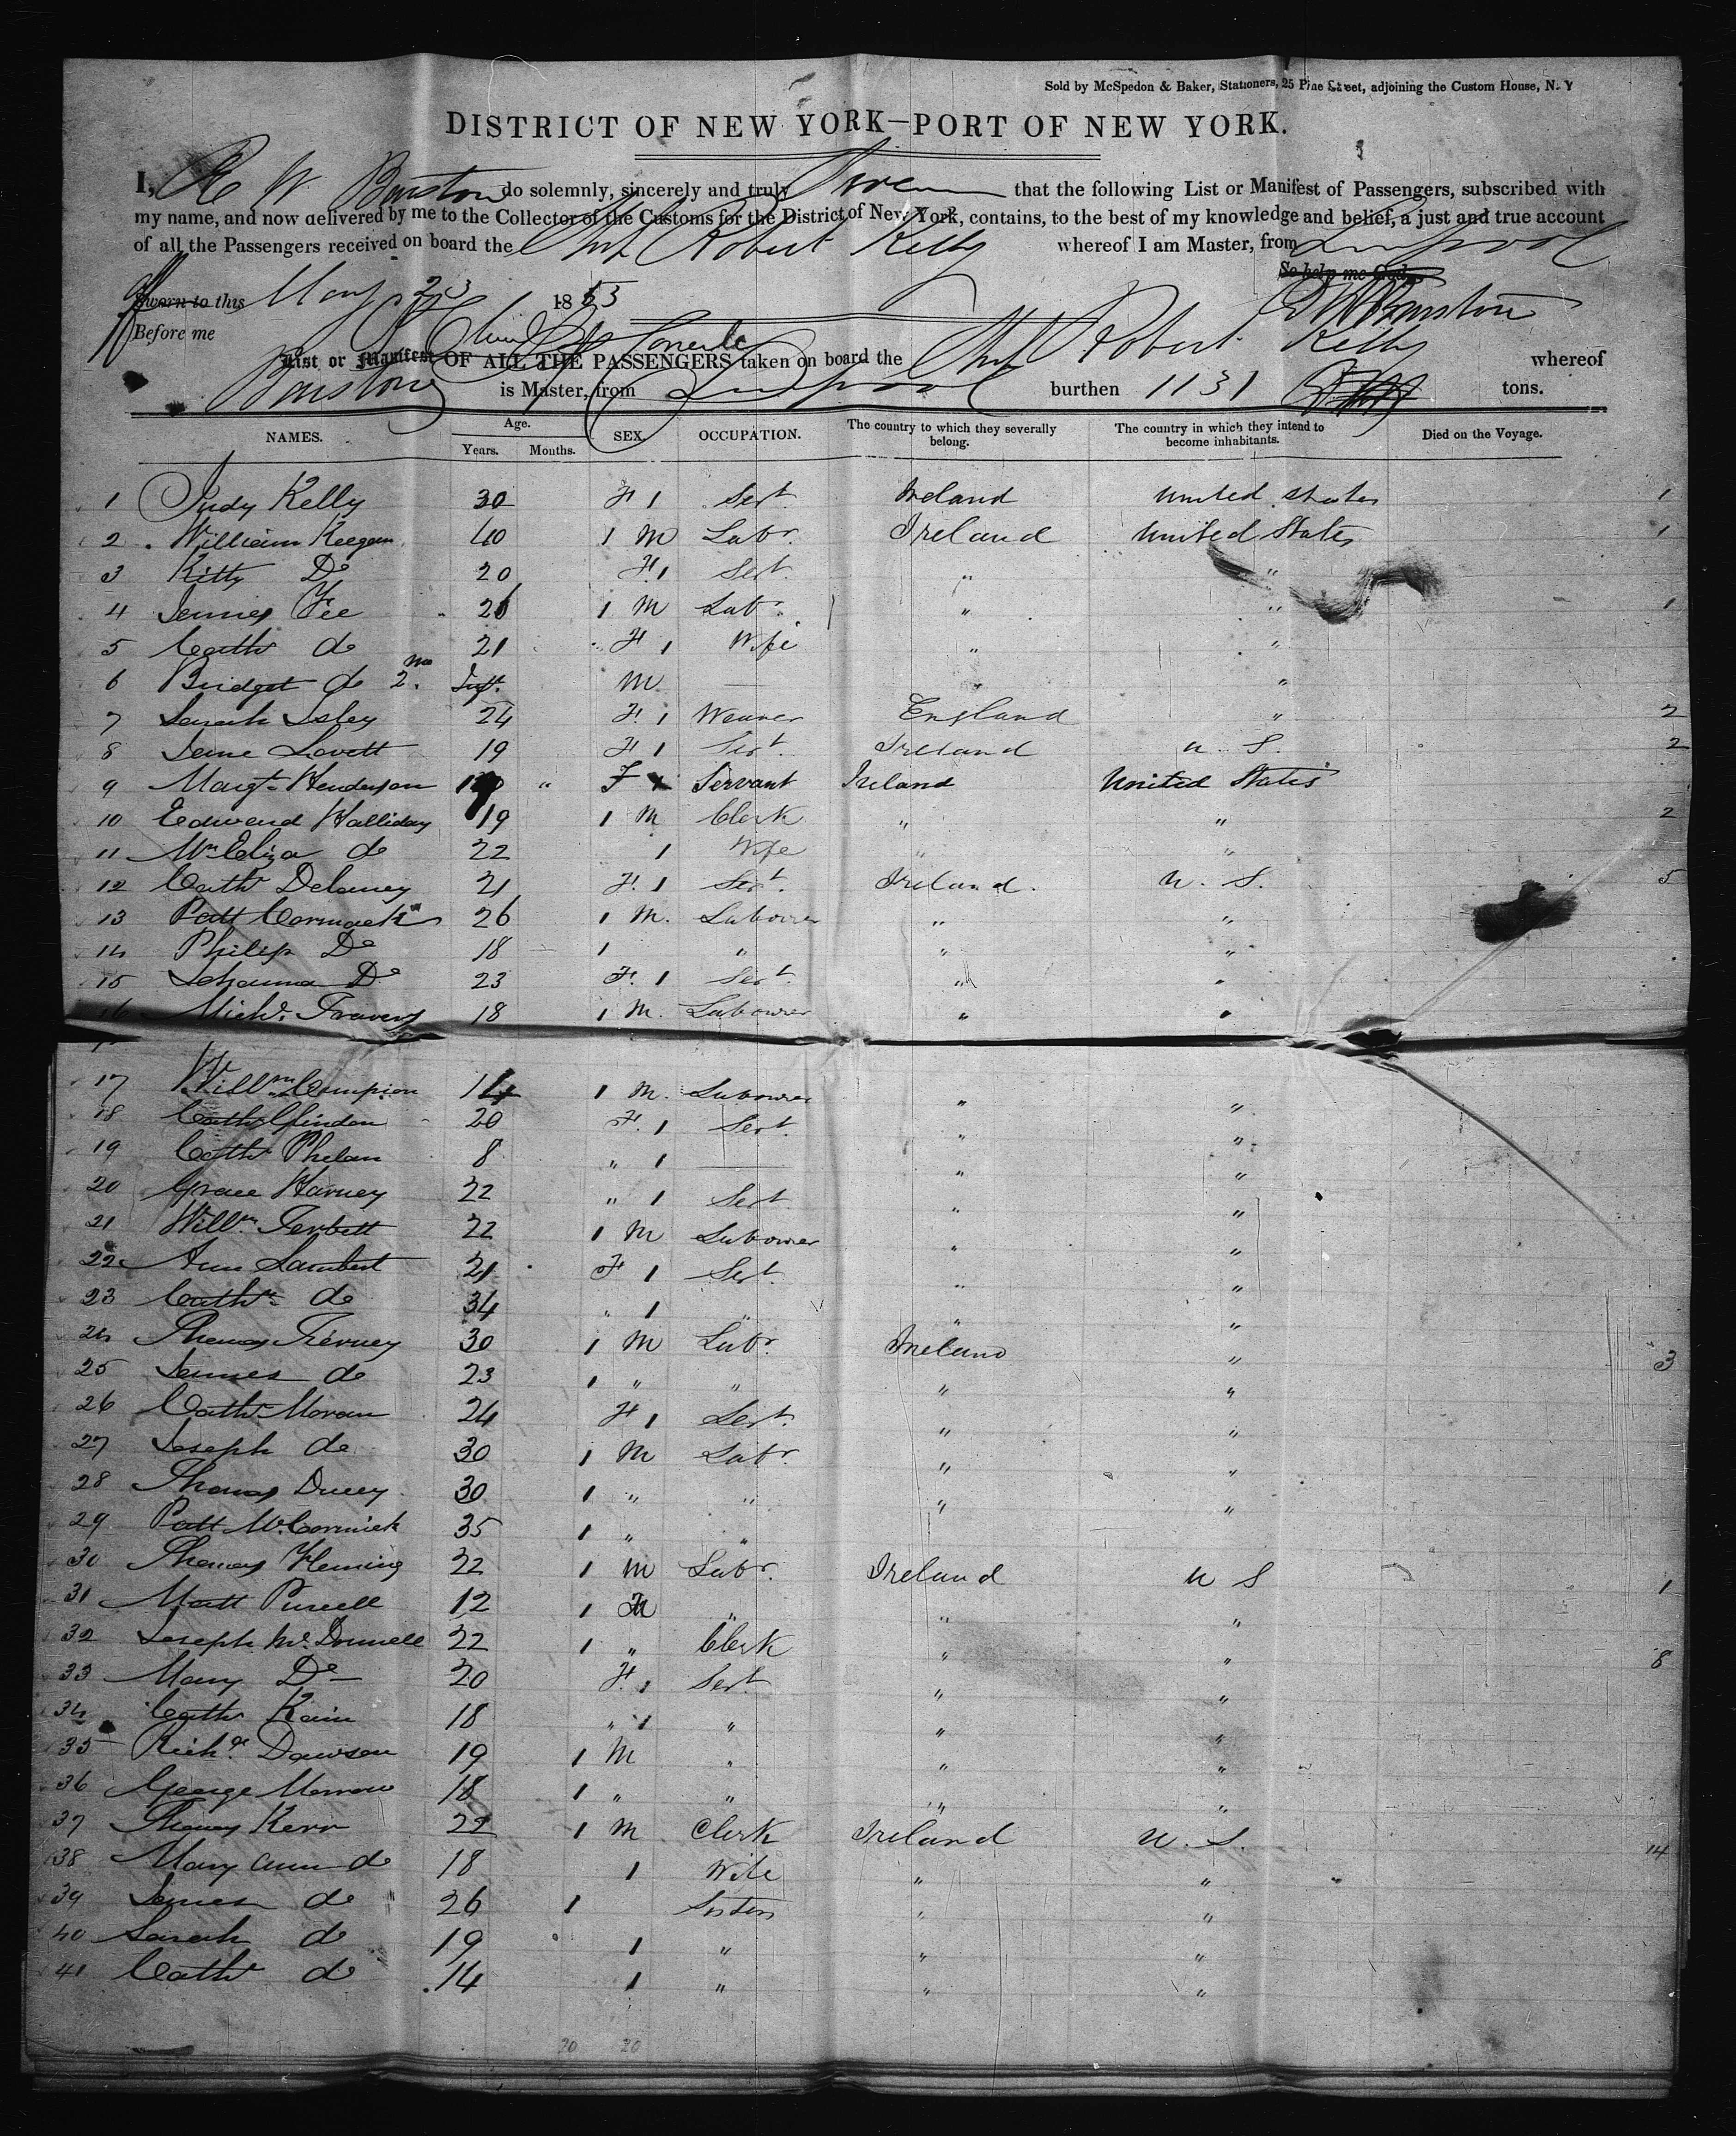 Sold by McSpedon & Baker, Stationers, 25 Pine Street, adjoining the Custom House, N. Y
DISTRICT OF NEW YORK—PORT OF NEW YORK.
I, R W Barstow do solemnly, sincerely and truly Swear that the following List or Manifest of Passengers, subscribed with
my name, and now delivered by me to the Collector of the Customs for the District of New York, contains, to the best of my knowledge and belief, a just and true account
of all the Passengers received on board the Ship Robert Kelly whereof I am Master, from Liverpool
So help me God.
Sworn to this May 23 1853
Before me
List or Manifest OF ALL THE PASSENGERS taken on board the Ship Robert Kelly whereof
Barstow is Master, from Liverpool burthen 1131 tons.
NAMES. Age. Years. Months. SEX. OCCUPATION. The country to which they severally belong. The country in which they intend to become inhabitants. Died on the Voyage.
1 Judy Kelly 30 F 1 Sert. Ireland United States 1
2 William Keegan 40 1 M Labr. Ireland United States 1
3 Kitty Do 20 F. 1 Sert. " "
4 James Fee 26 1 M Labr. " " 1
5 Cathe do 21 F 1 Wife " "
6 Bridget do 2 mo Inft. M. — " "
7 Sarah Isley 24 F. 1 Weaver England " 2
8 Jane Lovett 19 F 1 Sert. Ireland U. S. 2
9 Margt Henderson " F Servant Ireland United States
10 Edward Halliday 19 1 M Clerk " " 2
11 Eliza do 22 1 Wife " "
12 Cathe Delaney 21 F. 1 Sert. Ireland. U. S. 5
13 Patt Cormack 26 1 M. Labourer " "
14 Philip Do 18 1 " " "
15 Johanna Do 23 F. 1 Sert. " "
16 Michl. Travers 18 1 M. Labourer " "
17 Willm Campion 14 1 M. Labourer " "
18 Cathe 20 F. 1 Sert. " "
19 Cathe Phelan 8 " 1 — " "
20 Grace Harvey 22 " 1 Sert " "
21 Willm Terbett 22 1 M Labourer " "
22 Ann Lambert 21 F 1 Sert. " "
23 Cathe do 34 " 1 " " "
24 Thomas Tierney 30 1 M Labr. Ireland " 3
25 James do 23 1 " " " "
26 Cathe Moran 24 F 1 Sert. " "
27 Joseph do 30 1 M Labr. " "
28 Thomas Ducey 30 1 " " " "
29 Patt McCormick 35 1 " "
30 Thomas Fleming 22 1 M Labr. Ireland U S 1
31 Matt Purcell 12 1 M " " "
32 Joseph McDonnell 22 1 " Clerk " " 8
33 Mary Do 20 F. 1 Sert. " "
34 Cathe Kain 18 " 1 " " "
35 Richd. Dawson 19 1 M " " "
36 George Morrow 18 1 " " " "
37 Thomas Kerr 22 1 M Clerk Ireland U. S. 14
38 Mary Ann do 18 1 Wife " "
39 James do 26 1 Sisters " "
40 Sarah do 19 1 " " "
41 Cathe do 14 1 " " "
20 20